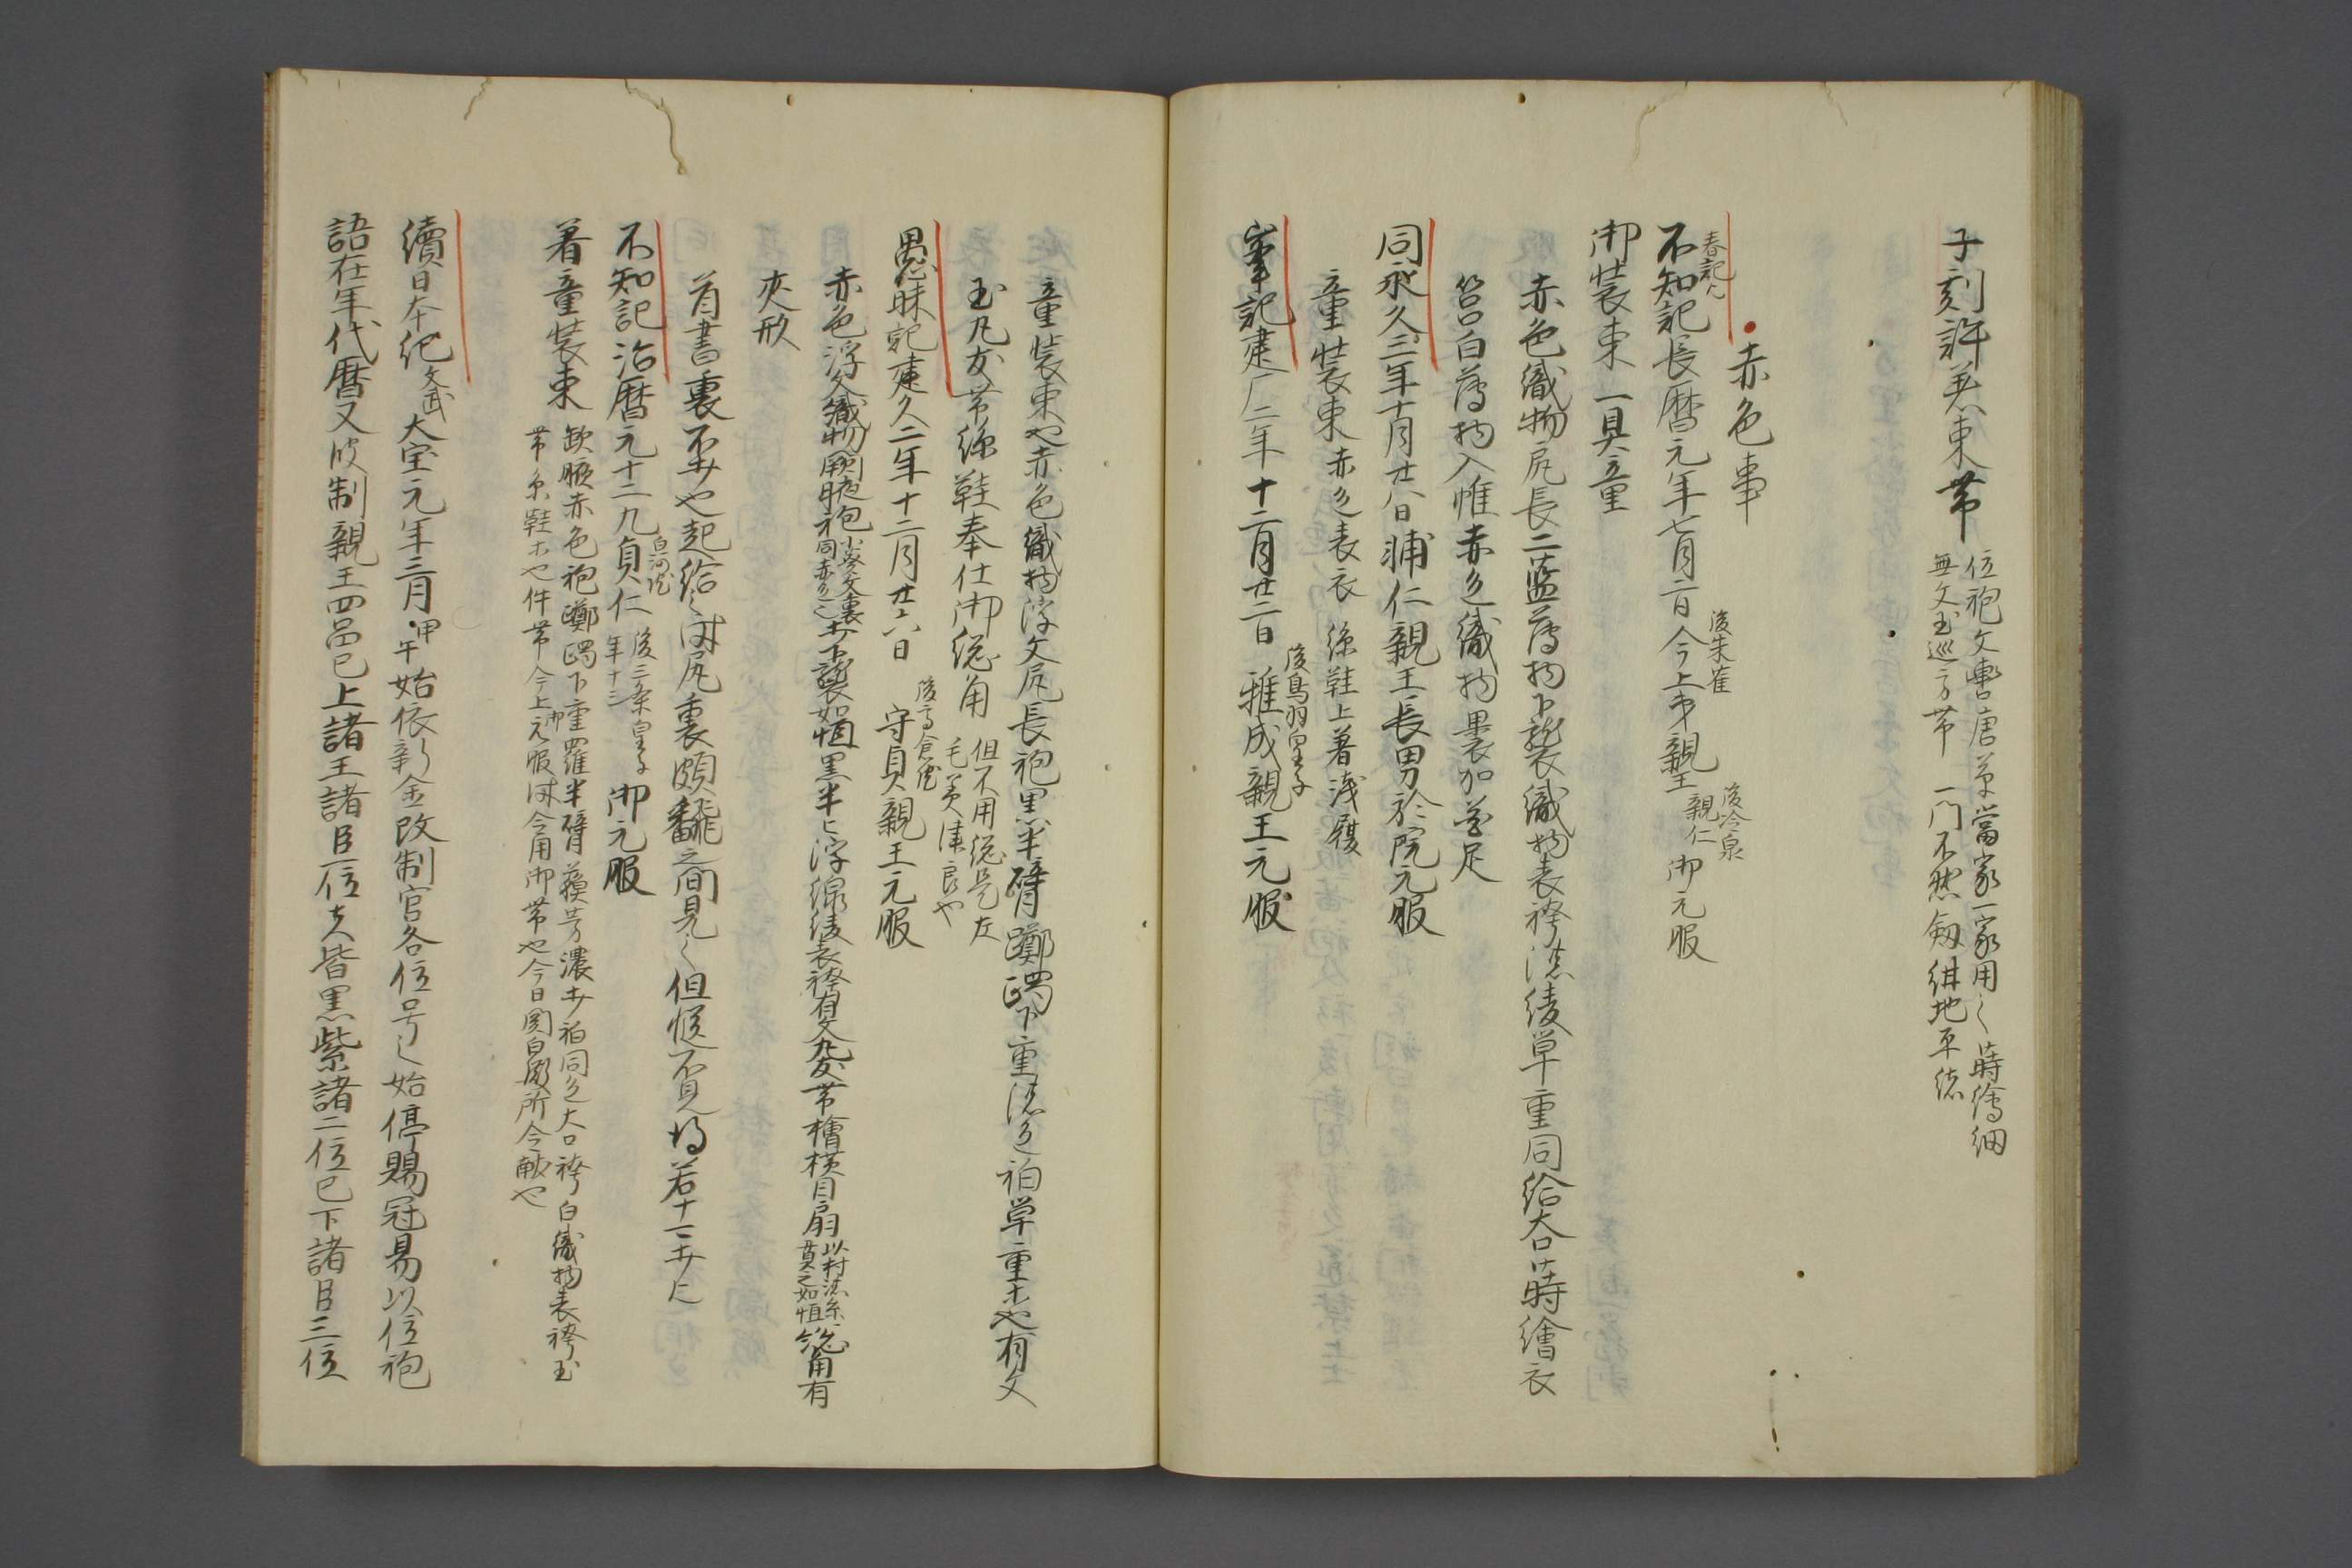 子剋許着束帯
位袍文轡唐草當家一家用之蒔繪細
無文玉巡方帯一門不然劔紺地平緒
赤色事
春記
不知記長暦元年七月二日今上第親王御元服
後朱雀
後冷泉
親仁
御装束一具童
赤色織物尻長二藍薄物下襲織物表袴濃綾單重同給大口蒔繪衣
筥白薄物入帷赤色織物裏加花足
同永久三年十月廿八日輔仁親王長男於院元服
童装束赤色表衣絲鞋上著浅履
峯記建广二年十二月廿二日雅成親王元服
後鳥羽皇子
童装束也赤色織物浮文尻長袍黒半臂躑躅下重濃色袙單重木也有文
玉九友帯絲鞋奉仕御総角
但不用総見左
毛美津良也
愚昧記建久二年十二月廿六日守貞親王元服
後高倉院
赤色浮文織物闕腋袍
小葵文裏
同赤色也
下襲如恒黒半ヒ浮線綾表袴有文丸友帯檜横目扇
以村濃糸
莫之如恒
総角有
夾形
首書裏不少也起給之時尻裏頗飜之間見之但慥不見得若十二才上
不知記治暦元十二九貞仁御元服
白河院
後三条皇子
年十三
着童装束
欽腋赤色袍躑躅下重羅半臂蘓芳濃打袙同色大口袴白織物表袴玉
帯糸鞋木也件帯今上御元服時令用御帯也今日関白殿所令献也
續日本紀文武大宝元年三月甲午始依新令改制官名位号之始停賜冠易以位袍
語在年代暦又改制親王四品已上諸王諸臣一位者皆黒紫諸二位已下諸臣三位